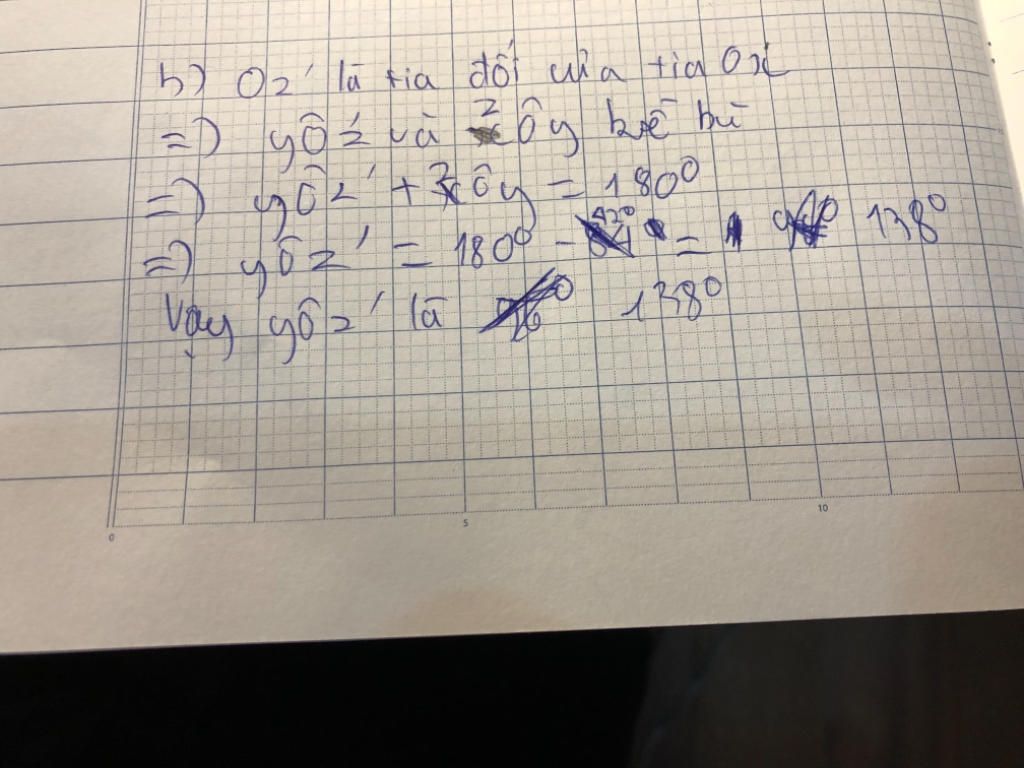 b) Oz' là tia đối của tia Ox
=) yÔz' và zÔy kề bù
=) yÔz' + zÔy = 180⁰
=) yÔz' = 180⁰ - 42⁰ = 138⁰
Vậy yÔz' là 138⁰
0 5 10